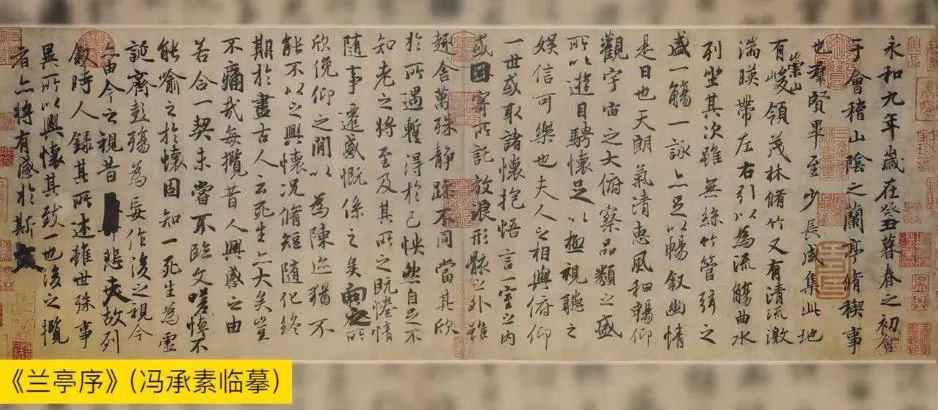 永和九年歲在癸丑暮春之初會
于會稽山陰之蘭亭脩稧事
也羣賢畢至少長咸集此地
有崇山峻領茂林脩竹又有清流激
湍暎帶左右引以為流觴曲水
列坐其次雖無絲竹管弦之
盛一觴一詠亦足以暢叙幽情
是日也天朗氣清惠風和暢仰
觀宇宙之大俯察品類之盛
所以遊目騁懷足以極視聽之
娛信可樂也夫人之相與俯仰
一世或取諸懷抱悟言一室之內
或因寄所託放浪形骸之外雖
趣舍萬殊静躁不同當其欣
於所遇蹔得於己怏然自足不
知老之將至及其所之既惓情
隨事遷感慨係之矣向之所
欣俛仰之間以為陳迹猶不
能不以之興懷況脩短隨化終
期於盡古人云死生亦大矣豈
不痛哉每攬昔人興感之由
若合一契未嘗不臨文嗟悼不
能喻之於懷固知一死生為虛
誕齊彭殤為妄作後之視今
亦由今之視昔悲夫故列
叙時人錄其所述雖世殊事
異所以興懷其致一也後之攬
者亦將有感於斯文
《兰亭序》(冯承素临摹)